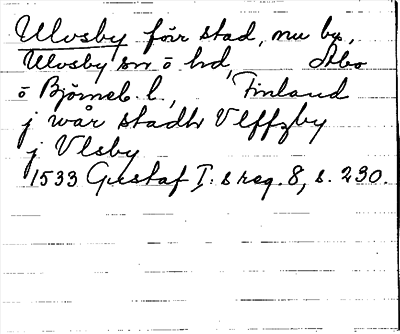 Ulvsby förr stad, nu by,
Ulvsby sn o. hd, Åbo
o. Björneb. l., Finland
j wår stadh Vlffzby
j Vlsby
1533 Gustaf I:s reg. 8, s. 230.